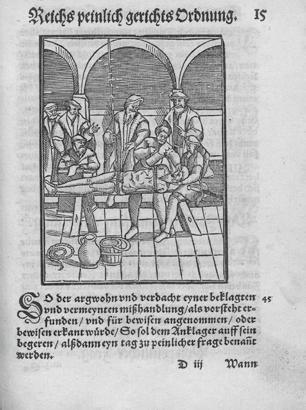 Reichs peinlich gerichts Ordnung. 15
SO der argwohn vnd verdacht eyner beklagten 45
vnd vermeynten mißhandlung/ als vorsteht er-
funden/ vnd für bewisen angenommen/ oder
bewisen erkant würde/ So sol dem Anklager auff sein
begeren/ alßdann eyn tag zu peinlicher frage benañt
werden.
D iij Wann